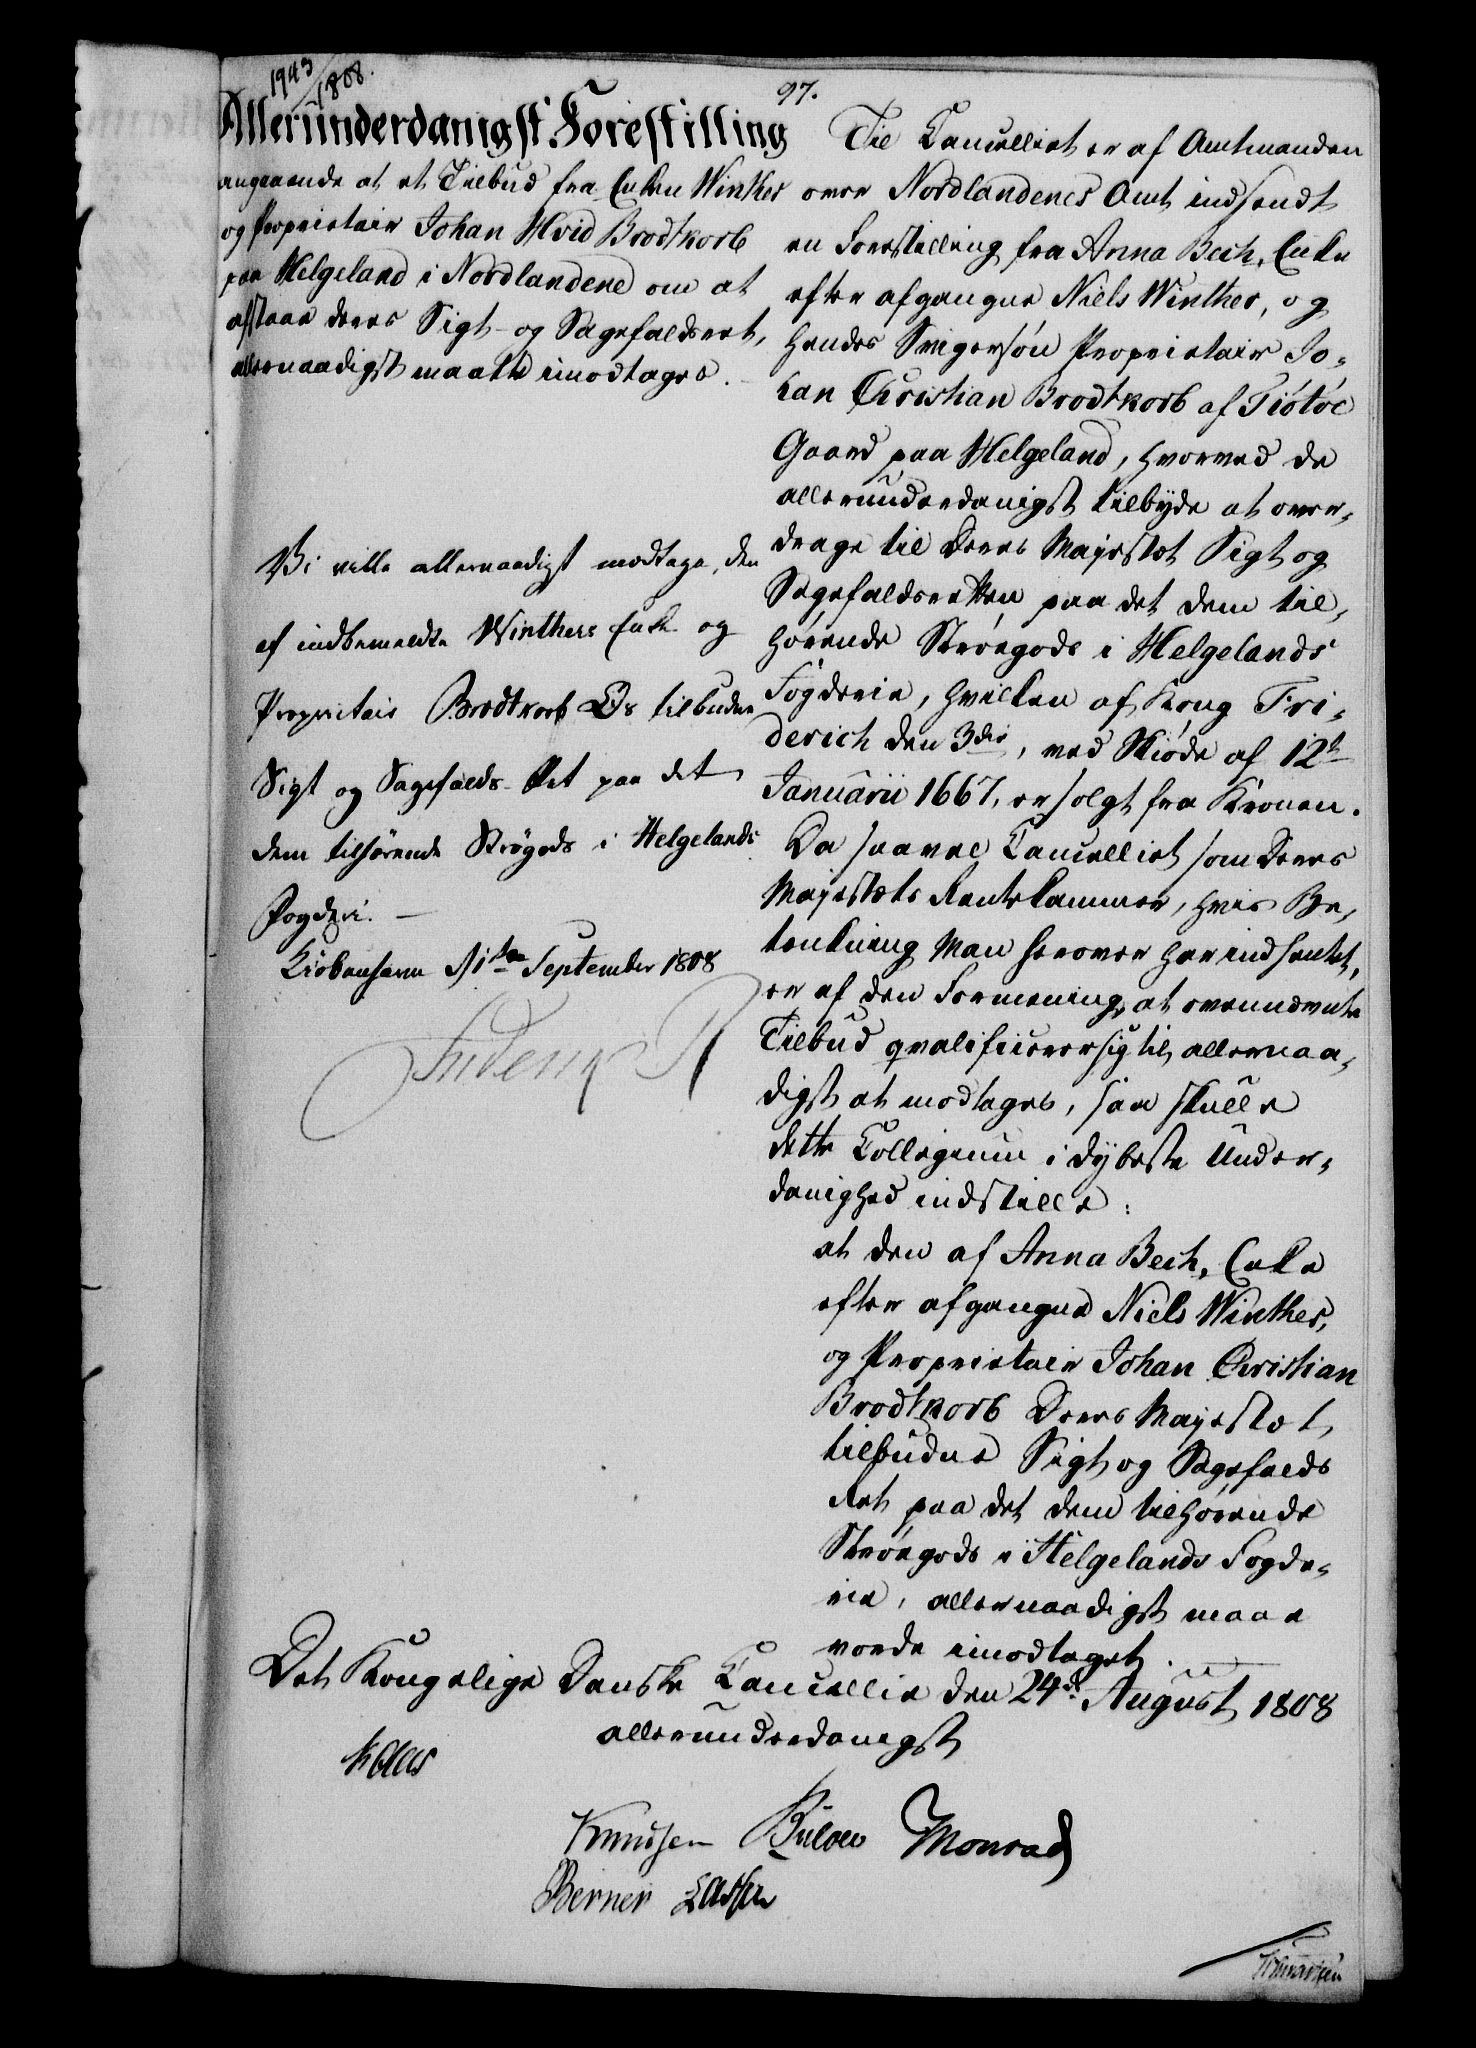 1943/1808.
97.
Allerunderdanigst Forestilling
angaaende at et Tilbud fra Enken Winther
og Proprietair Johan Hvid Brodtkorb
paa Helgeland i Nordlandene om at
afstaae deres Sigt- og Sagefaldsret,
allernaadigst maatte imodtages.
Vi ville allernaadigst modtage, den
af indbemeldte Winthers Enke og
Proprietair Brodtkorb Os tilbudne
Sigt og Sagefalds-Ret paa det
dem tilhørende Strögods i Helgelands
Fogderi. —
Kiöbenhavn d 1ste September 1808
Frederik R
Til Cancelliet er af Amtmanden
over Nordlandenes Amt indsendt
en Forestilling fra Anna Bech, Enke
efter afgangne Niels Winther, og
hendes Svigersøn Proprietair Jo-
han Christian Brodtkorb af Tiötöe
Gaard paa Helgeland, hvorved de
allerunderdanigst tilbyde at over-
drage til Deres Majestæt Sigt og
Sagefaldsretten paa det dem til-
hørende Strøegods i Helgelands
Fogderie, hvilken af Kong Fri-
derich den 3die, ved Skiøde af 12te
Januarii 1667, er solgt fra Kronen.
Da saavel Cancelliet som Deres
Majestæts Rentekammer, hvis Be-
tænkning Man herover har indhentet,
er af den Formening, at ovennævnte
Tilbud qvalificerer sig til allernaa-
digst at modtages, saa skulle
dette Collegium i dybeste Under-
danighed indstille:
at den af Anna Bech, Enke
efter afgangne Niels Winther,
og Proprietair Johan Christian
Brodtkorb Deres Majestæt
tilbudne Sigt og Sagefalds
Ret paa det dem tilhørende
Strøegods i Helgelands Fogde-
rie, allernaadigst maae
vorde imodtaget.
Det Kongelige Danske Cancellie den 24de August 1808
allerunderdanigst
Kaas
Knudsen Bülow Monrad
Berner Lassen